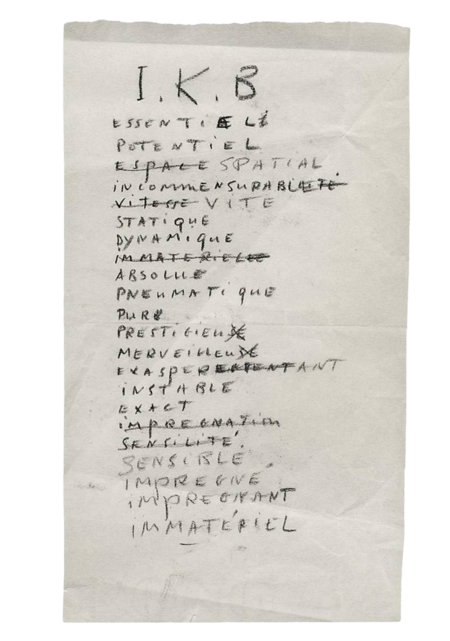 I.K.B
ESSENTIEL
POTENTIEL
ESPACE SPATIAL
INCOMMENSURABLE
VITESSE VITE
STATIQUE
DYNAMIQUE
IMMATERIELLE
ABSOLUE
PNEUMATIQUE
PUR
PRESTIGIEUX
MERVEILLEUX
EXASPERANT
INSTABLE
EXACT
IMPREGNATION
SENSILITÉ.
SENSIBLE.
IMPREGNE
IMPREGNANT
IMMATÉRIEL